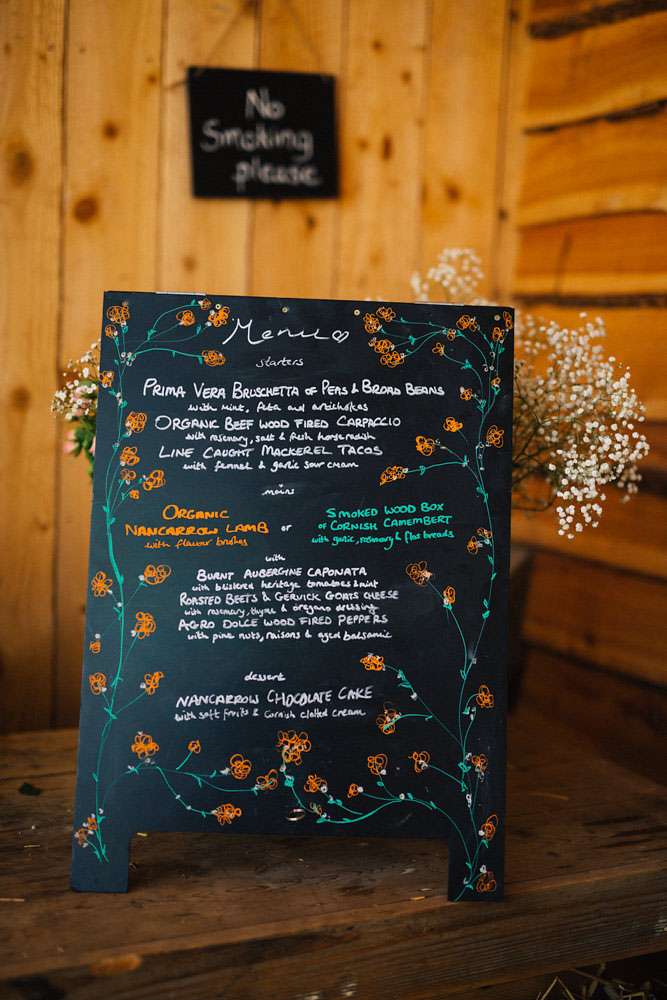 No
Smoking
please
Menu
starters
PRIMA VERA BRUSCHETTA OF PEAS & BROAD BEANS
with mint, feta and artichokes
ORGANIC BEEF WOOD FIRED CARPACCIO
with rosemary, salt & fresh horseradish
LINE CAUGHT MACKEREL TACOS
with fennel & garlic sour cream
mains
ORGANIC
NANCARROW LAMB
with flavour brushes
or
SMOKED WOOD BOX
OF CORNISH CAMEMBERT
with garlic, rosemary & flat breads
with
BURNT AUBERGINE CAPONATA
with blistered heritage tomatoes & mint
ROASTED BEETS & GEVRICK GOATS CHEESE
with rosemary, thyme & oregano dressing
AGRO DOLCE WOOD FIRED PEPPERS
with pine nuts, raisons & aged balsamic
dessert
NANCARROW CHOCOLATE CAKE
with soft fruits & cornish clotted cream